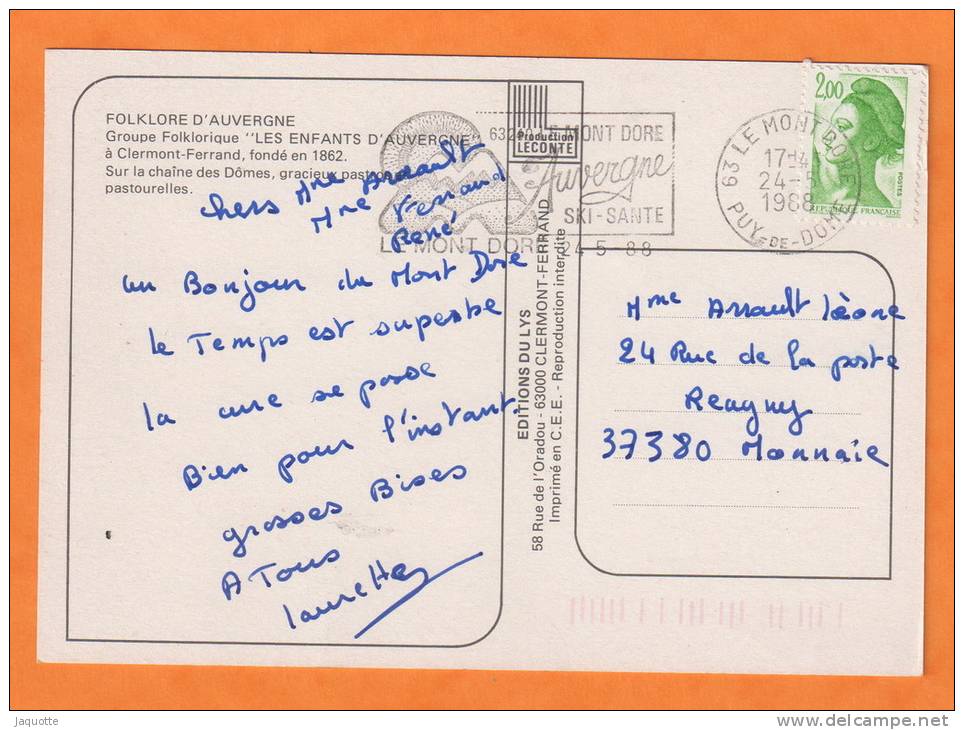 FOLKLORE D'AUVERGNE
Groupe Folklorique "LES ENFANTS D'AUVERGNE"
à Clermont-Ferrand, fondé en 1862.
Sur la chaîne des Dômes, gracieux
pastourelles.
chers Mme Arrault
Mme Fernand
René
un Bonjour du Mont Dore
le Temps est superbe
la cure se passe
Bien pour l'instant.
grosses Bises
A Tous
laurette
Production
LECONTE
LE MONT DORE
Auvergne
SKI-SANTE
LE MONT DORE 24-5-88
63 LE MONT DORE
24-5
1988
PUY-DE-DOME
2,00
POSTES
REPUBLIQUE FRANCAISE
EDITIONS DU LYS
58 Rue de l'Oradou - 63000 CLERMONT-FERRAND
Imprimé en C.E.E. - Reproduction interdite
Mme Arrault léone
24 Rue de la poste
Reugny
37380 Monnaie
Jaquotte
delcampe.net